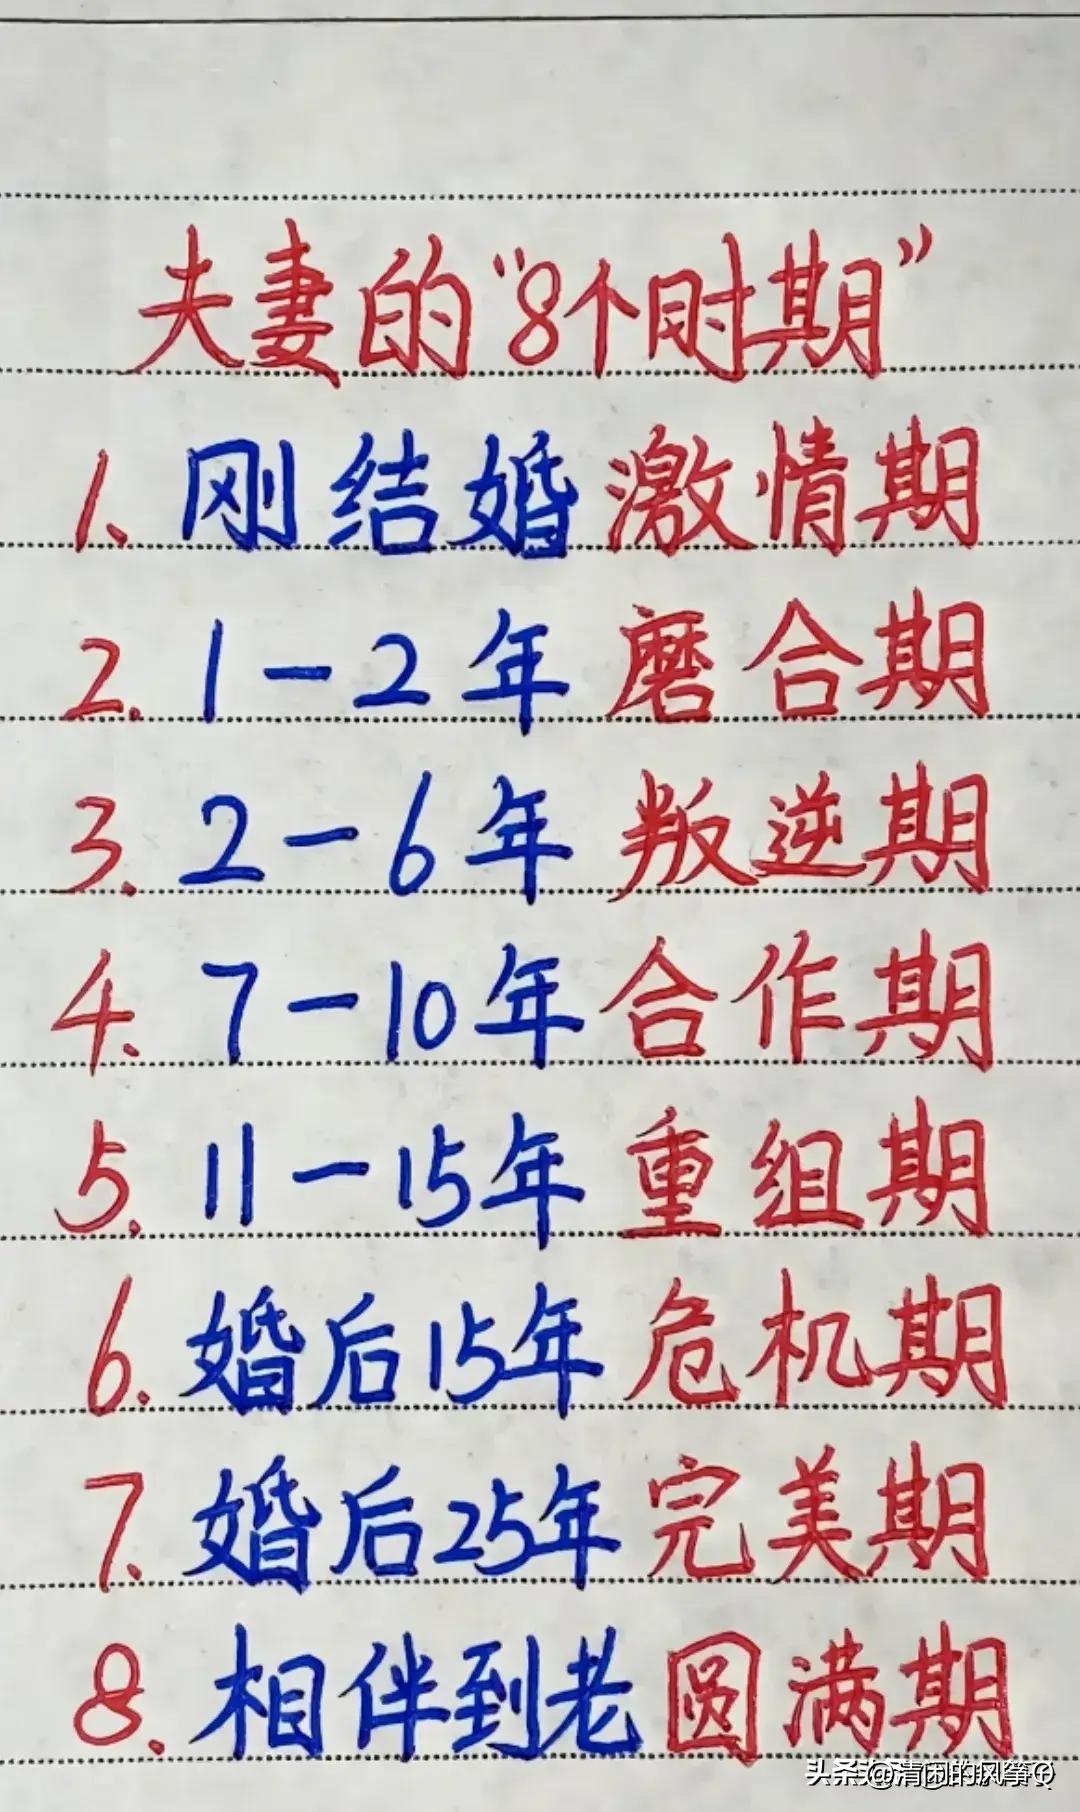 夫妻的“8个时期”
1、刚结婚激情期
2.1-2年磨合期
3.2-6年叛逆期
4.7-10年合作期
5.11-15年重组期
6.婚后15年危机期
7.婚后25年完美期
8.相伴到老圆满期
头条 @清闲的风筝